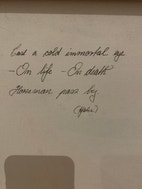 Cast a cold immortal eye
- On life - On death
Horseman pass by
(Yeats)